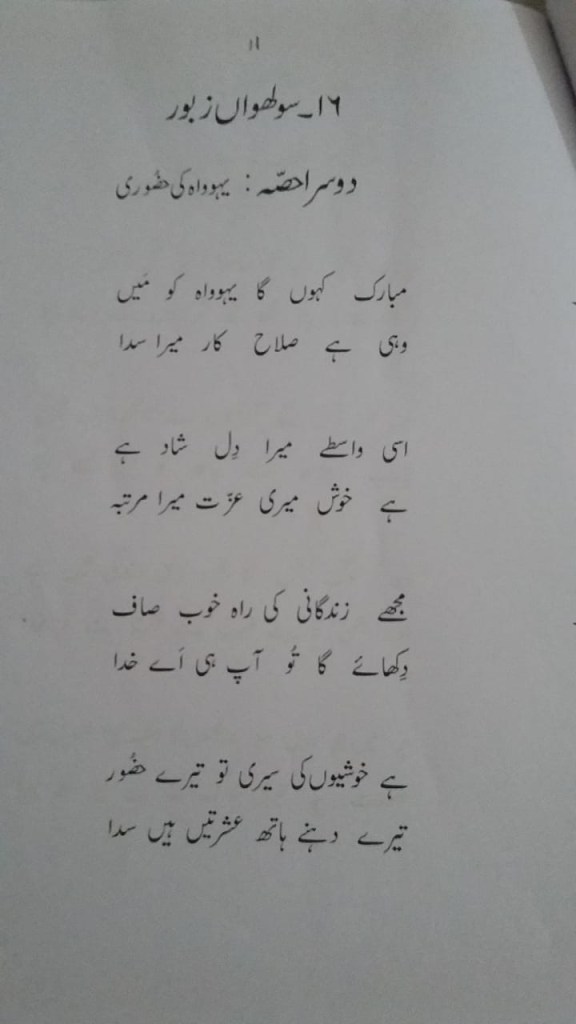 ۱۱
۱۶۔سولھواں زبور
دوسرا حصّہ : یہوواہ کی حضُوری
مبارک کہوں گا یہوواہ کو مَیں
وہی ہے صلاح کار میرا سدا
اسی واسطے میرا دِل شاد ہے
ہے خوش میری عزّت میرا مرتبہ
مجھے زندگانی کی راہ خوب صاف
دِکھائے گا تُو آپ ہی اَے خدا
ہے خوشیوں کی سیری تو تیرے حضُور
تیرے دہنے ہاتھ عشرتیں ہیں سدا